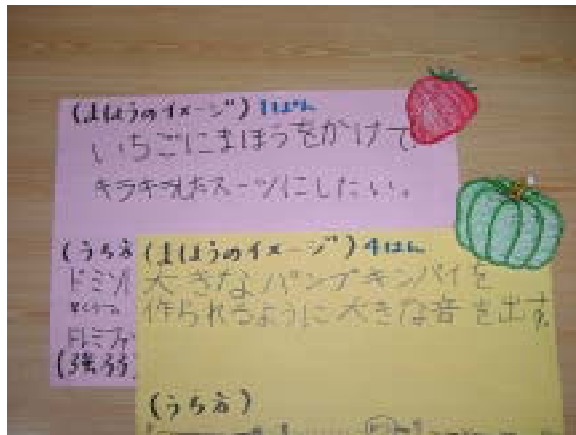 (まほうのイメージ) 1ぱん
いちごにまほうをかけて
キラキラしたスーツにしたい。
(うち方
ドミソ
(強弱
(まほうのイメージ) 4はん
大きなパンプキンパイを
作られるように大きな音を出す。
(うち方)